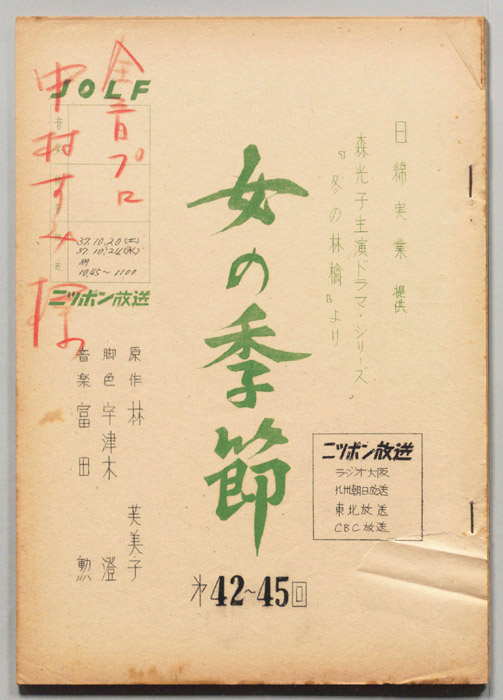 日綿実業 提供
森光子主演ドラマ・シリーズ
「冬の林檎」より
女の季節
第42~45回
JOLF
37.10.20(土)
37.10.24(水)
10.45~1100
ニッポン放送
中村すみ様
原作 林 芙美子
脚色 宇津木 澄
音楽 富田 勲
ニッポン放送
ラジオ大阪
九州朝日放送
東北放送
CBC放送